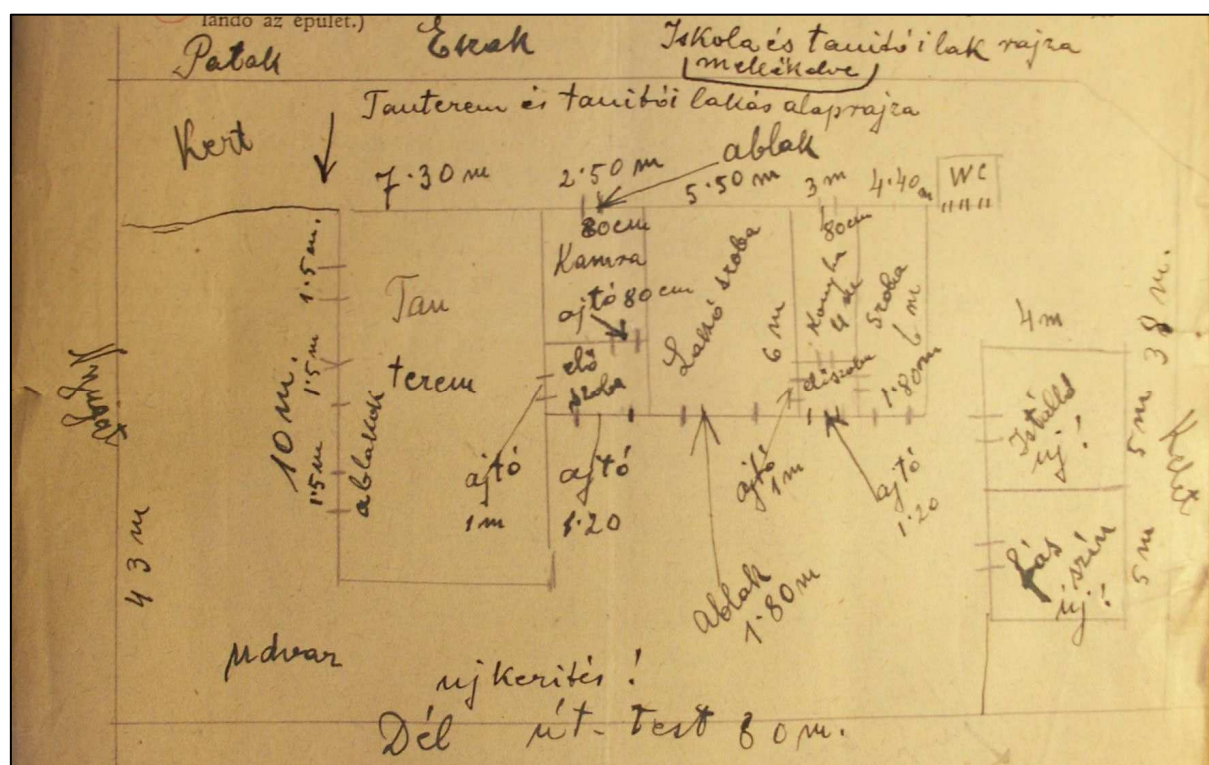 landó az épület.)
Patak
Észak
Iskola és tanitói lak rajza
mellékelve
Tanterem és tanitói lakás alaprajza
Kert
7·30 m
2·50 m
ablak
5·50 m
3 m
4·40 m
WC
80cm
Kamra
ajtó 80cm
elő
szoba
Lakó szoba
6 m
80cm
Konyha
4 m
előszoba
1
Szoba
6 m
1·80m
Tan
terem
1·5 m.
1·5 m
1·5 m
10 m.
ablakok
Nyugat
43 m
ajtó
1m
ajtó
1·20
ablak
1·80 m
ajtó
1m
ajtó
1·20
4 m
38 m.
Istálló
új!
5 m
Kelet
Fás szín
új!
5 m
Udvar
uj kerités!
Dél út-test 80 m.